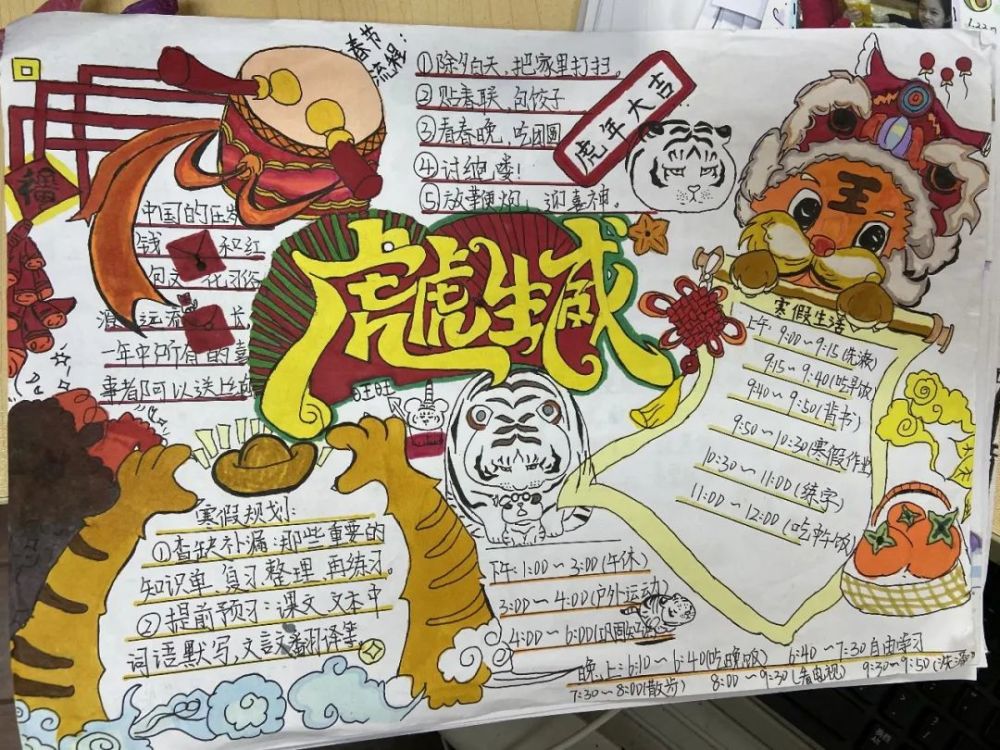 春节
流程:
①除夕白天,把家里打扫。
②贴春联、包饺子
③看春晚,吃团圆
④讨红包喽!
⑤放鞭炮,迎喜神。
虎年大吉
福
中国的压岁
钱 和红
包文化习俗
源远流长,
一年中所有的喜
事者阝可以送上红
虎虎生威
旺旺
王
寒假生活
上午: 9:00~9:15(洗漱)
9:15~9:40(吃早饭)
9:40~9:50(背书)
9:50~10:30(寒假作业
10:30~11:00(练字)
11:00~12:00(吃午饭)
寒假规划:
①查缺补漏:那些重要的
知识单、复习、整理、再练习。
②提前预习:课文、文本中
词语默写,文言文翻译等
下午:1:00~3:00(午休)
3:00~4:00(户外运动)
4:00~6:00(巩固
晚上:6:10~6:40(吃晚饭) 6:40~7:30自由学习
7:30~8:00(散步) 8:00~9:30(看电视) 9:30~9:50(洗漱)